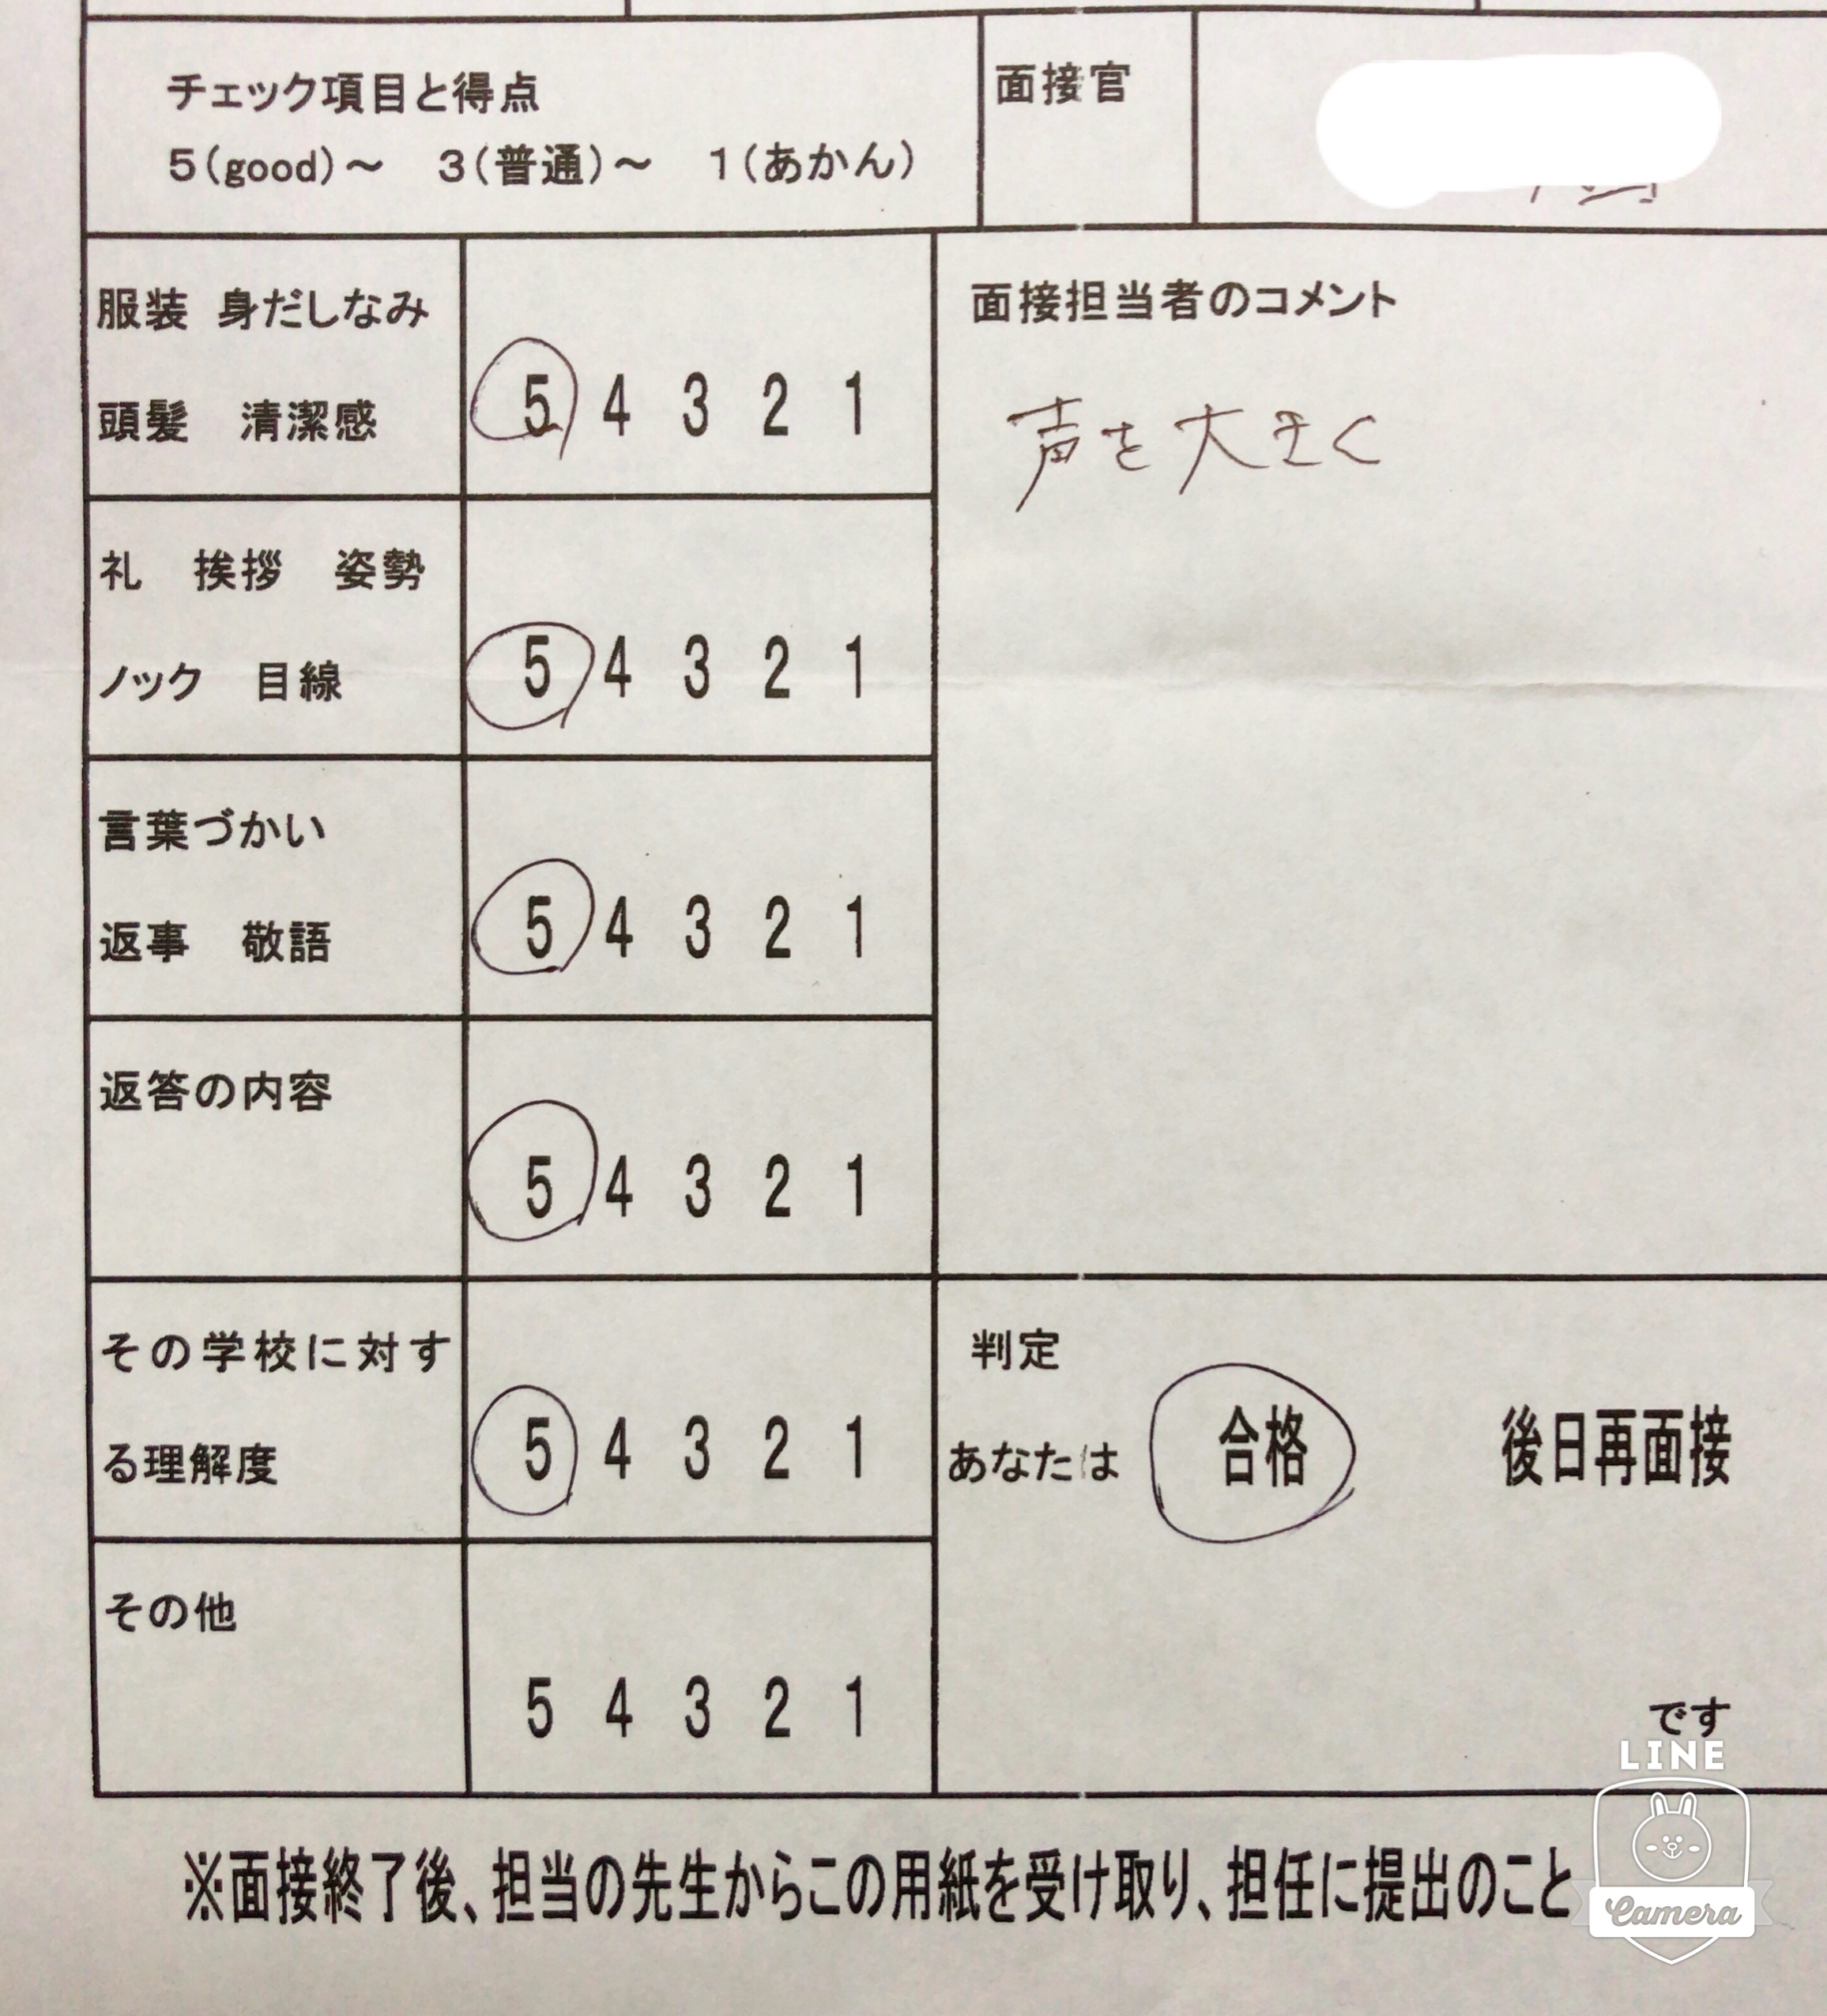 チェック項目と得点
5(good)～　3(普通)～　1(あかん)
面接官
服装　身だしなみ
頭髪　清潔感
5 4 3 2 1
面接担当者のコメント
声を大きく
礼　挨拶　姿勢
ノック　目線
5 4 3 2 1
言葉づかい
返事　敬語
5 4 3 2 1
返答の内容
5 4 3 2 1
その学校に対す
る理解度
5 4 3 2 1
判定
あなたは　合格　後日再面接
です
その他
5 4 3 2 1
※面接終了後、担当の先生からこの用紙を受け取り、担任に提出のこと
LINE
Camera